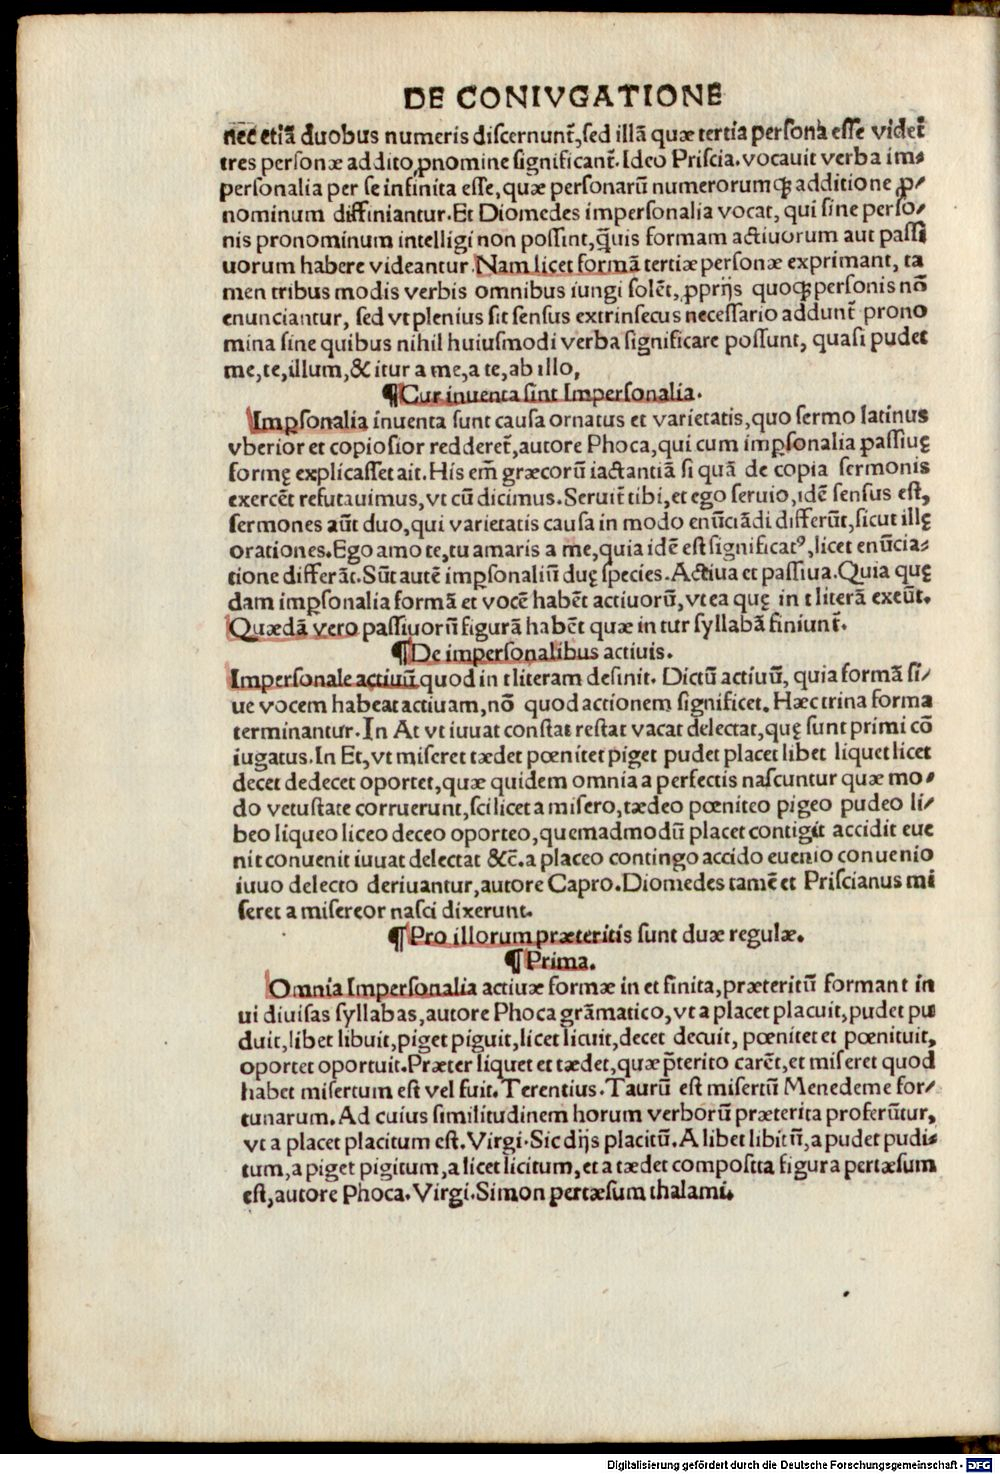 DE CONIVGATIONE
nec̄ etiā duobus numeris discernunt᷑, sed illā quæ tertia persona esse videt᷑
tres personæ addito ꝓnomine significant᷑. Ideo Priscia. vocauit verba im⸗
personalia per se infinita esse, quæ personarū numerorumꝙ additione ꝓ⸗
nominum diffiniantur. Et Diomedes impersonalia vocat, qui sine perso⸗
nis pronominum intelligi non possint, q̄uis formam actiuorum aut passi
uorum habere videantur. Nam licet formā tertiæ personæ exprimant, ta
men tribus modis verbis omnibus iungi solēt, ꝓprijs quoqꝫ personis nō
enunciantur, sed vt plenius sit sensus extrinsecus necessario addunt᷑ prono
mina sine quibus nihil huiusmodi verba significare possunt, quasi pudet
me, te, illum, & itur a me, a te, ab illo,
¶Cur inuenta sint Impersonalia.
Imꝑsonalia inuenta sunt causa ornatus et varietatis, quo sermo latinus
vberior et copiosior redderet᷑, autore Phoca, qui cum imꝑsonalia passiuę
formę explicasset ait. His em̄ græcorū iactantiā si quā de copia sermonis
exercēt refutauimus, vt cū dicimus. Seruit᷑ tibi, et ego seruio, idē sensus est,
sermones aūt duo, qui varietatis causa in modo enūciādi differūt, sicut illę
orationes. Ego amo te, tu amaris a me, quia idē est significatꝰ, licet enūcia⸗
tione differāt. Sūt autē imꝑsonaliū duę species. Actiua et passiua. Quia quę
dam imꝑsonalia formā et vocē habēt actiuorū, vt ea quę in t literā exeūt.
Quædā vero passiuorū figurā habēt quæ in tur syllabā finiunt᷑.
¶De impersonalibus actiuis.
Impersonale actiuū quod in t literam desinit. Dictū actiuū, quia formā si⸗
ue vocem habeat actiuam, nō quod actionem significet. Hæc trina forma
terminantur. In At vt iuuat constat restat vacat delectat, quę sunt primi cō
iugatus. In Et, vt miseret tædet pœnitet piget pudet placet libet liquet licet
decet dedecet oportet, quæ quidem omnia a perfectis nascuntur quæ mo⸗
do vetustate corruerunt, scilicet a misero, tædeo pœniteo pigeo pudeo li⸗
beo liqueo liceo deceo oporteo, quemadmodū placet contigit accidit eue
nit conuenit iuuat delectat &c̄. a placeo contingo accido euenio conuenio
iuuo delecto deriuantur, autore Capro. Diomedes tamē et Priscianus mi
seret a misereor nasci dixerunt.
¶Pro illorum præteritis sunt duæ regulæ.
¶Prima.
Omnia Impersonalia actiuæ formæ in et finita, præteritū formant in
ui diuisas syllabas, autore Phoca grāmatico, vt a placet placuit, pudet pu
duit, libet libuit, piget piguit, licet licuit, decet decuit, pœnitet et pœnituit,
oportet oportuit. Præter liquet et tædet, quæ p̄terito carēt, et miseret quod
habet misertum est vel fuit. Terentius. Taurū est misertū Menedeme for⸗
tunarum. Ad cuius similitudinem horum verborū præterita proferūtur,
vt a placet placitum est. Virgi. Sic dijs placitū. A libet libitū, a pudet pudi⸗
tum, a piget pigitum, a licet licitum, et a tædet composita figura pertæsum
est, autore Phoca. Virgi. Simon pertæsum thalami.
Digitalisierung gefördert durch die Deutsche Forschungsgemeinschaft - DFG